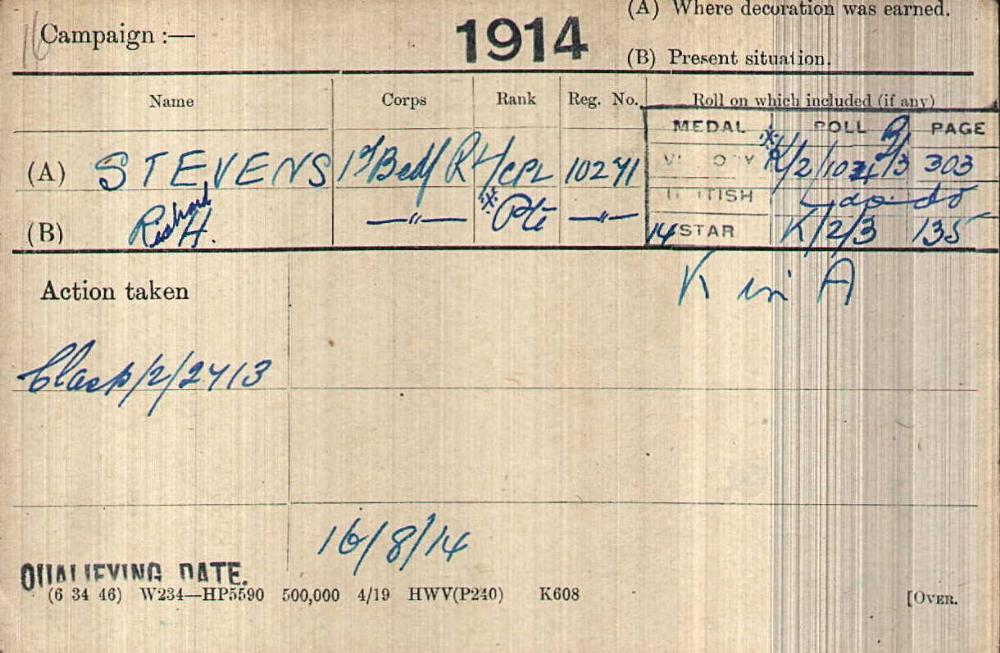 (A) Where decoration was earned.
Campaign :— 1914
(B) Present situation.
Name Corps Rank Reg. No. Roll on which included (if any)
MEDAL ROLL PAGE
(A) STEVENS 1st Bedf R L/CPL 10271 VICTORY 303
(B) Richard H. —"— * Pte —"— BRITISH do do
14 STAR K/2/3 135
K in A
Action taken
Clasp/2/2713
16/8/14
QUALIFYING DATE.
(6 34 46) W234—HP5590 500,000 4/19 HWV(P240) K608 [OVER.